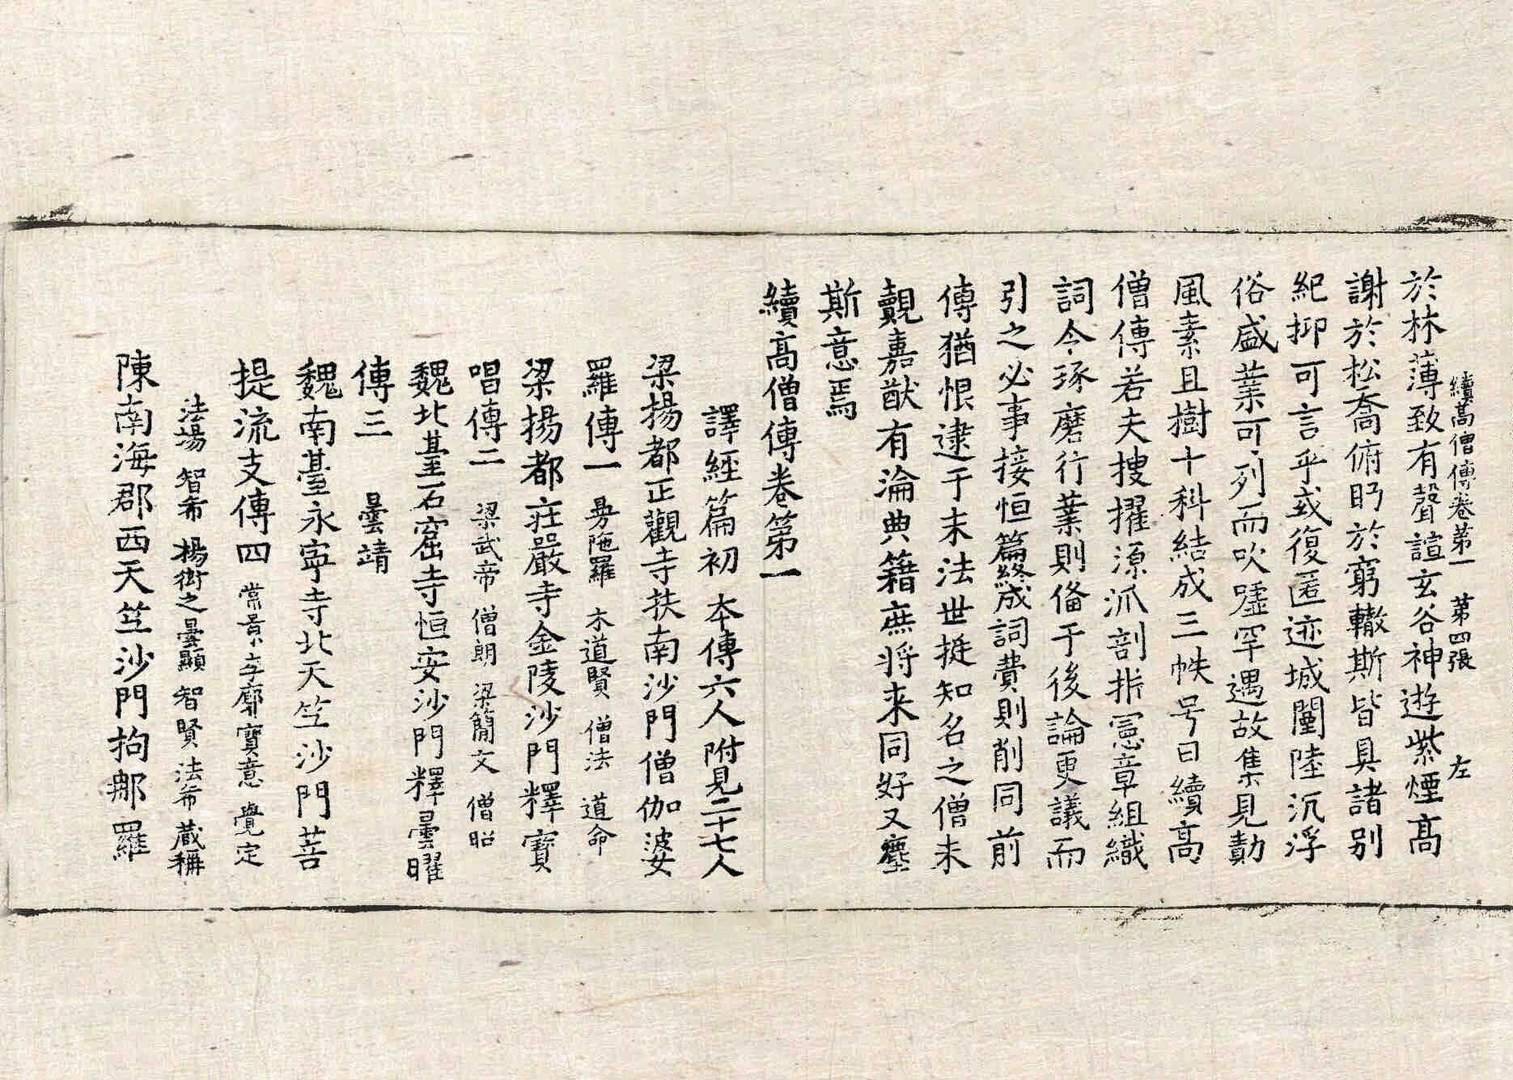 續高僧傳卷第一 第四張 左
於林薄致有聲諠玄谷神遊紫煙高
謝於松喬俯眄於窮轍斯皆具諸别
紀抑可言乎或復匿迹城闉陸沉浮
俗盛業可列而吹噓罕遇故集見勣
風素且樹十科結成三帙号曰續高
僧傳若夫搜擢源派剖指憲章組織
詞令琢磨行業則俻于後論更議而
引之必事接恒篇終成詞費則削同前
傳猶恨逮于末法世挺知名之僧未
覿嘉猷有淪典籍庶将来同好又塵
斯意焉
續高僧傳卷第一
譯經篇初 本傳六人 附見二十七人
梁揚都正觀寺扶南沙門僧伽婆
羅傳一 曼陁羅 木道賢 僧法 道命
梁揚都莊嚴寺金陵沙門釋寶
唱傳二 梁武帝 僧朗 梁簡文 僧昭
魏北臺石窟寺恒安沙門釋曇曜
傳三 曇靖
魏南臺永寧寺北天竺沙門菩
提流支傳四 常景 李廓 寶意 覺定
法場 智希 楊衒之 曇顯 智賢 法希 藏稱
陳南海郡西天竺沙門拘那羅